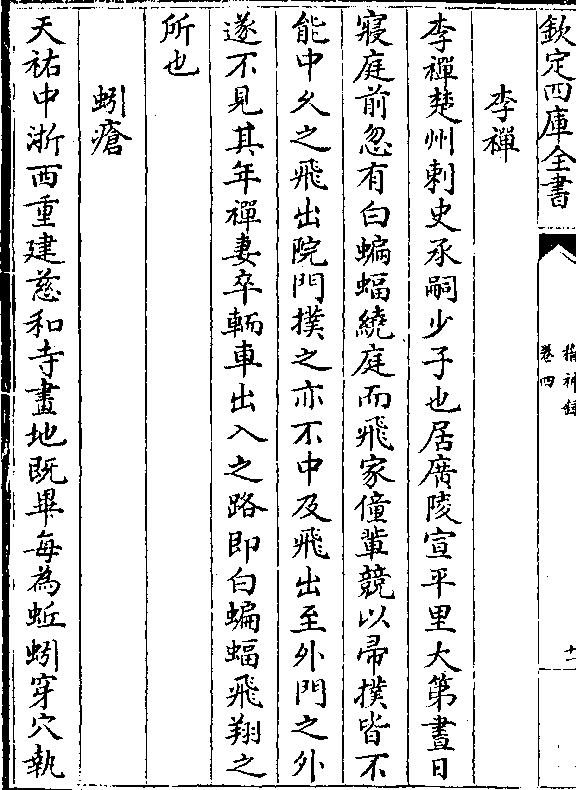 欽定四庫全書
稽神録
卷四
十一
李禪
李禪楚州刺史承嗣少子也居廣陵宣平里大第晝日
寢庭前忽有白蝙蝠繞庭而飛家僮輩競以帚撲皆不
能中乆之飛出院門撲之亦不中及飛出至外門之外
遂不見其年禪妻卒輀車出入之路即白蝙蝠飛翔之
所也
蚓瘡
天祐中浙西重建慈和寺畫地既畢每為蚯蚓穿穴執